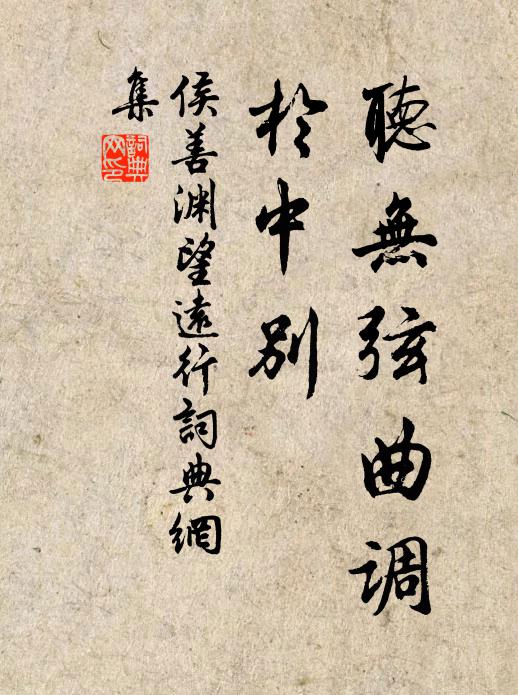 聽無弦曲调
於中別
侯善渊望遠行詞典網
集
詞典
网印